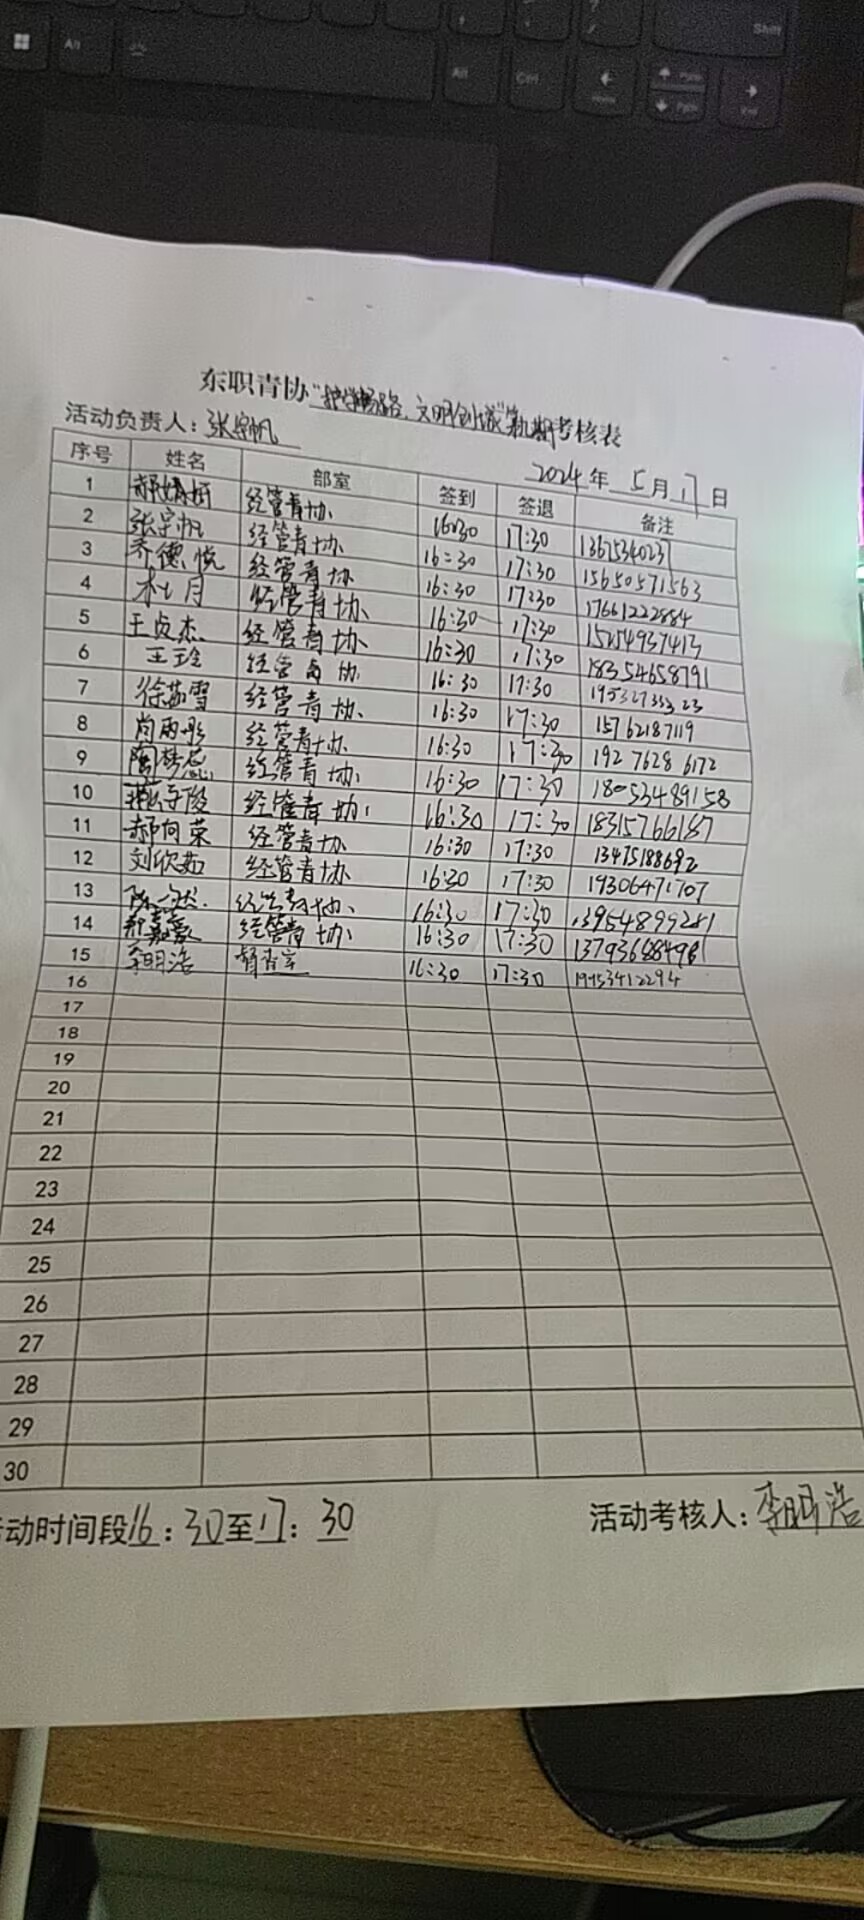 东职青协“护学畅路,文明创城”第九期考核表
活动负责人:张宇帆
2024年 5月 17日
序号 姓名 部室 签到 签退 备注
1 郝婧妍 经管青协 16:30 17:30 13675340237
2 张宇帆 经管青协 16:30 17:30 15650571563
3 乔德悦 经管青协 16:30 17:30 17661222884
4 杜月 经管青协 16:30 17:30 15254937413
5 王贞杰 经管青协 16:30 17:30 18354658791
6 王玲 经管青协 16:30 17:30
7 徐茹雪 经管青协 16:30 17:30 15762187119
8 肖雨彤 经管青协 16:30 17:30 192 7628 6172
9 陶梦蕊 经管青协 16:30 17:30 18053489158
10 经管青协 16:30 17:30 18315766187
11 郝向荣 经管青协 16:30 17:30 13475188692
12 刘欣茹 经管青协 16:30 17:30 19306471707
13 经管青协 16:30 17:30 13954899281
14 经管青协 16:30 17:30 13793688496
15 李明浩 督查室 16:30 17:30 19953412294
16
17
18
19
20
21
22
23
24
25
26
27
28
29
30
动时间段16:30至17:30 活动考核人:李明浩
Alt
Alt
Ctrl
Shift
Home
PgUp
PgDn
End